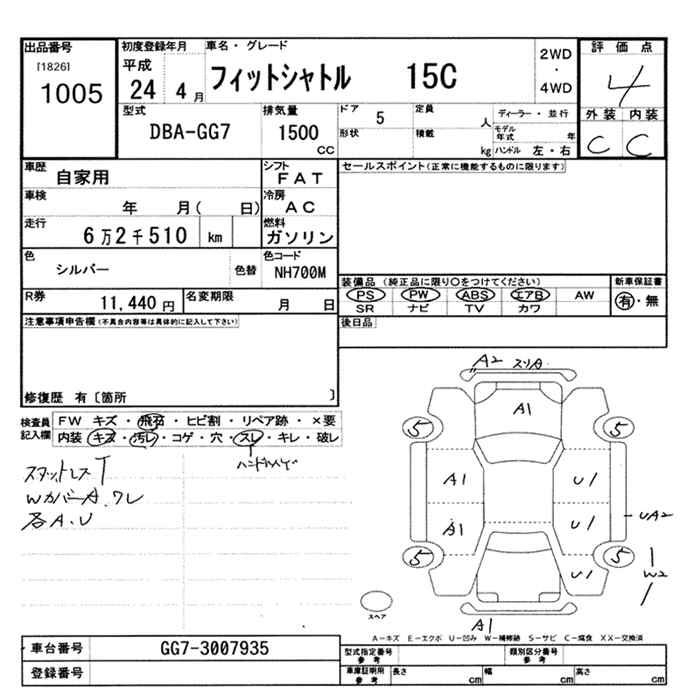 出品番号
[1826]
1005
初度登録年月
平成
24 4月
車名・グレード
フィットシャトル 15C
2WD
・
4WD
評価点
4
外装 内装
C C
型式
DBA-GG7
排気量
1500
CC
ドア
5
形状
定員
人
積載
kg
ディーラー・並行
モデル年式 年
ハンドル 左・右
車歴
自家用
シフト
FAT
車検
年 月( 日)
冷房
AC
走行
6万2千510 km
燃料
ガソリン
色
シルバー
色替
色コード
NH700M
R券
11,440円
名変期限
月 日
セールスポイント(正常に機能するものに限ります)
装備品 (純正品に限り〇をつけてください)
PS PW ABS エアB AW
SR ナビ TV カワ
新車保証書
有・無
後日品
注意事項申告欄(不具合内容等は具体的に記入して下さい)
修復歴 有〔箇所 〕
検査員
記入欄
FW キズ・飛石・ヒビ割・リペア跡・×要
内装 キズ・汚レ・コゲ・穴・スレ・キレ・破レ
スタットレスT
Wカバー A.ワレ
各A.U
A2
A1
5 5
A1 U1
A1 U1
UA2
5 5
U1
W2
A1
スペア
A-キズ E-エクボ U-凹み W-補修跡 S-サビ C-腐食 XX-交換済
車台番号
GG7-3007935
登録番号
型式指定番号
参考
類別区分番号
参考
車庫証明用
参考
長さ cm 幅 cm 高さ cm